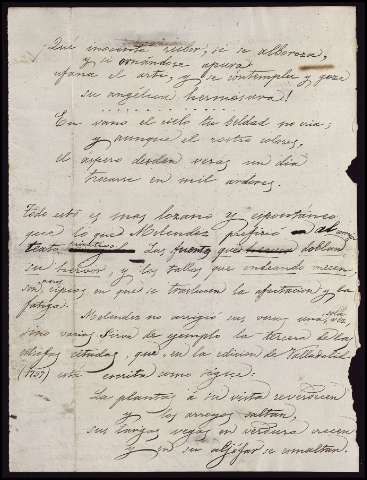 Qué inocente reir; si se alboroza,
y si ornándose apura
ufana el arte, y se contempla y goza
su angélica hermosura!
En vano el cielo tu beldad no cria;
y aunque el rostro colores,
el áspero desden verás un dia
trocarse en mil ardores.
Todo esto es mas lozano y espontáneo
que lo que Melendez prefirió al
texto primitivo. Las que doblan
su hervor, y los tallos que mecen,
son ripios en que se traslucen la afectacion y la
fatiga.
Melendez no corrigió sus versos una sola vez,
sino varias. Sirva de ejemplo la tercera de las
estrofas citadas, que, en la edicion de Valladolid
(1797) está escrita como sigue:
La plantas á su vista reverdecen
y los arroyos saltan.
sus largas vegas en verdura crecen
y en su aljófar se esmaltan.